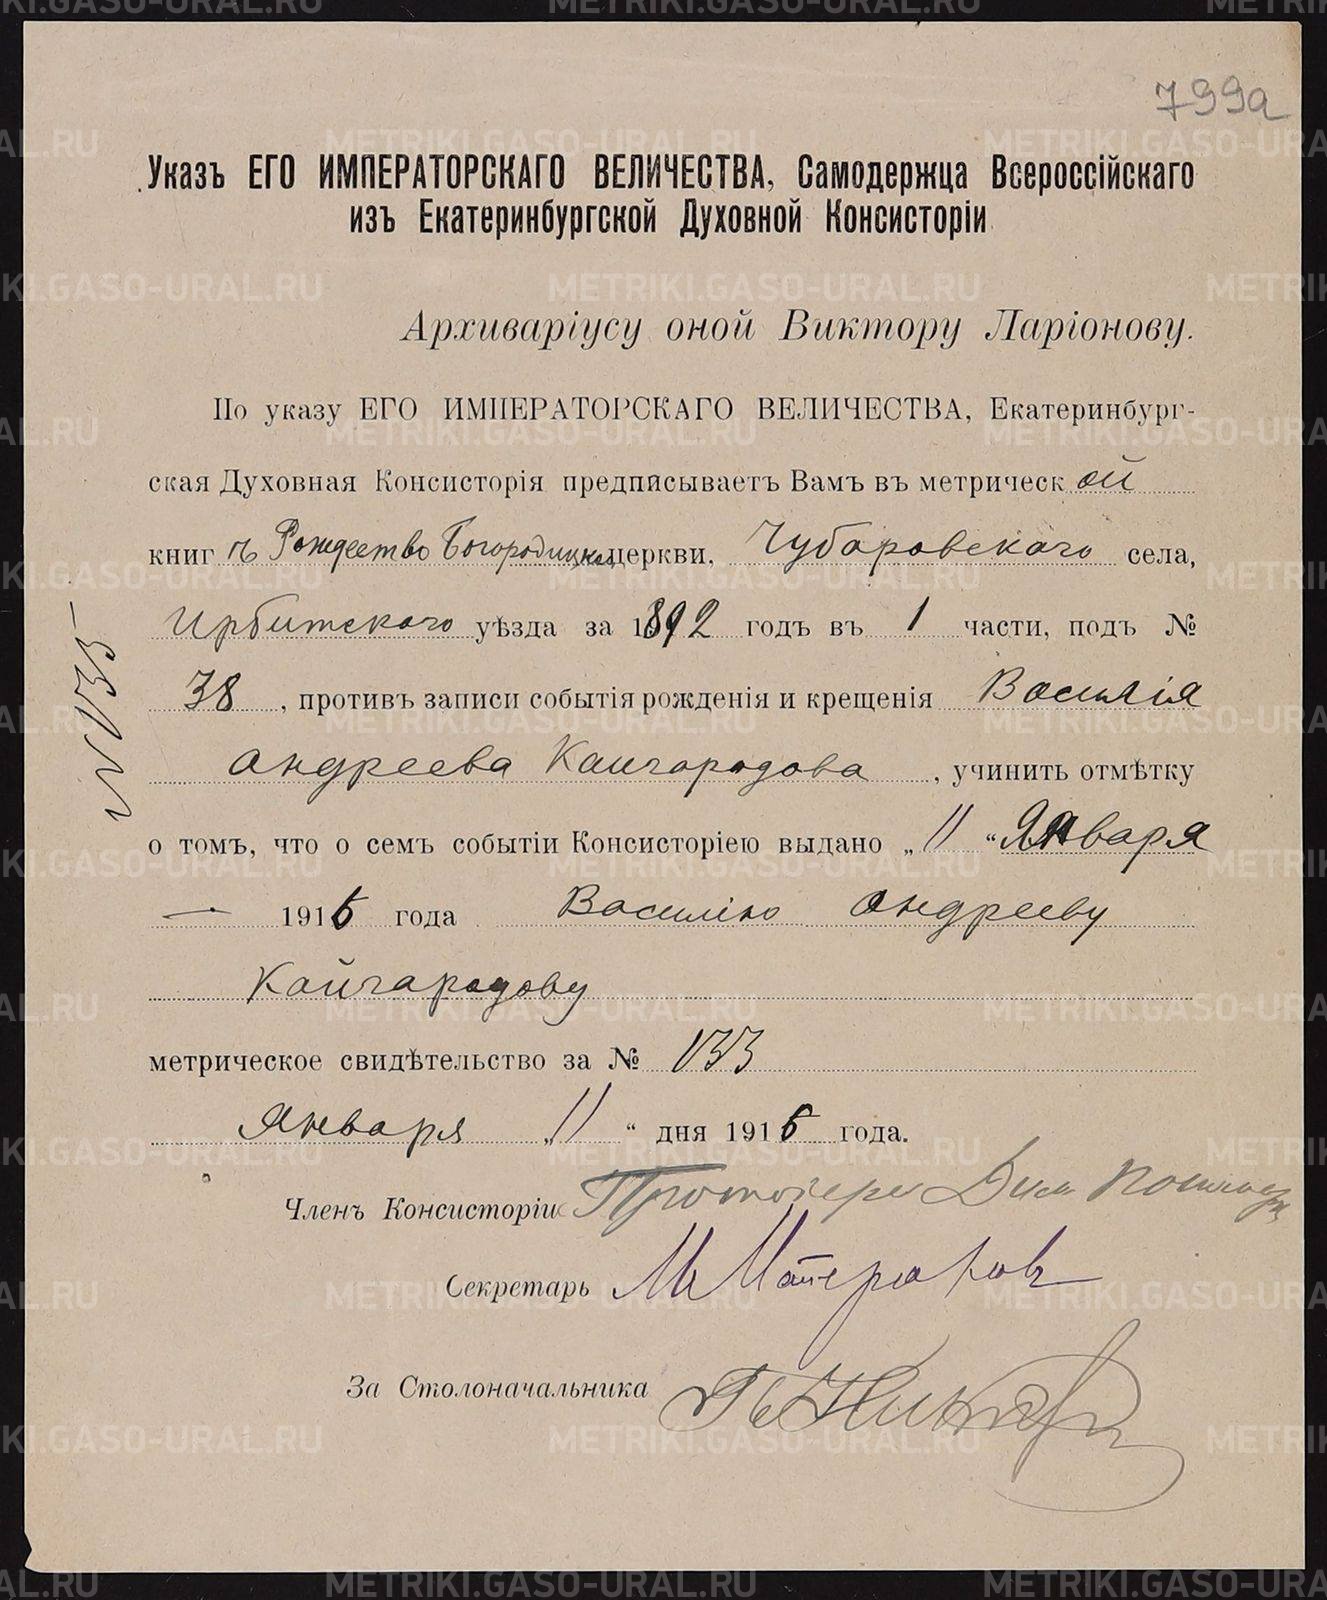 799а
Указъ ЕГО ИМПЕРАТОРСКАГО ВЕЛИЧЕСТВА, Самодержца Всероссійскаго
изъ Екатеринбургской Духовной Консисторіи
Архиваріусу оной Виктору Ларіонову.
По указу ЕГО ИМПЕРАТОРСКАГО ВЕЛИЧЕСТВА, Екатеринбург-
ская Духовная Консисторія предписываетъ Вамъ въ метрическ ой
книг ѣ Рождество Богородицкой церкви, Чубаровскаго села,
Ирбитскаго уѣзда за 1892 годъ въ 1 части, подъ №
38, противъ записи событія рожденія и крещенія Василія
Андреева Кайгородова, учинить отмѣтку
о томъ, что о семъ событіи Консисторіею выдано „11“ Января
— 1916 года Василію Андрееву
Кайгародову
метрическое свидѣтельство за № 133
Января „11“ дня 1916 года.
№ 135
Членъ Консисторіи Протоіерей Дим.
Секретарь М.
За Столоначальника
METRIKI.GASO-URAL.RU